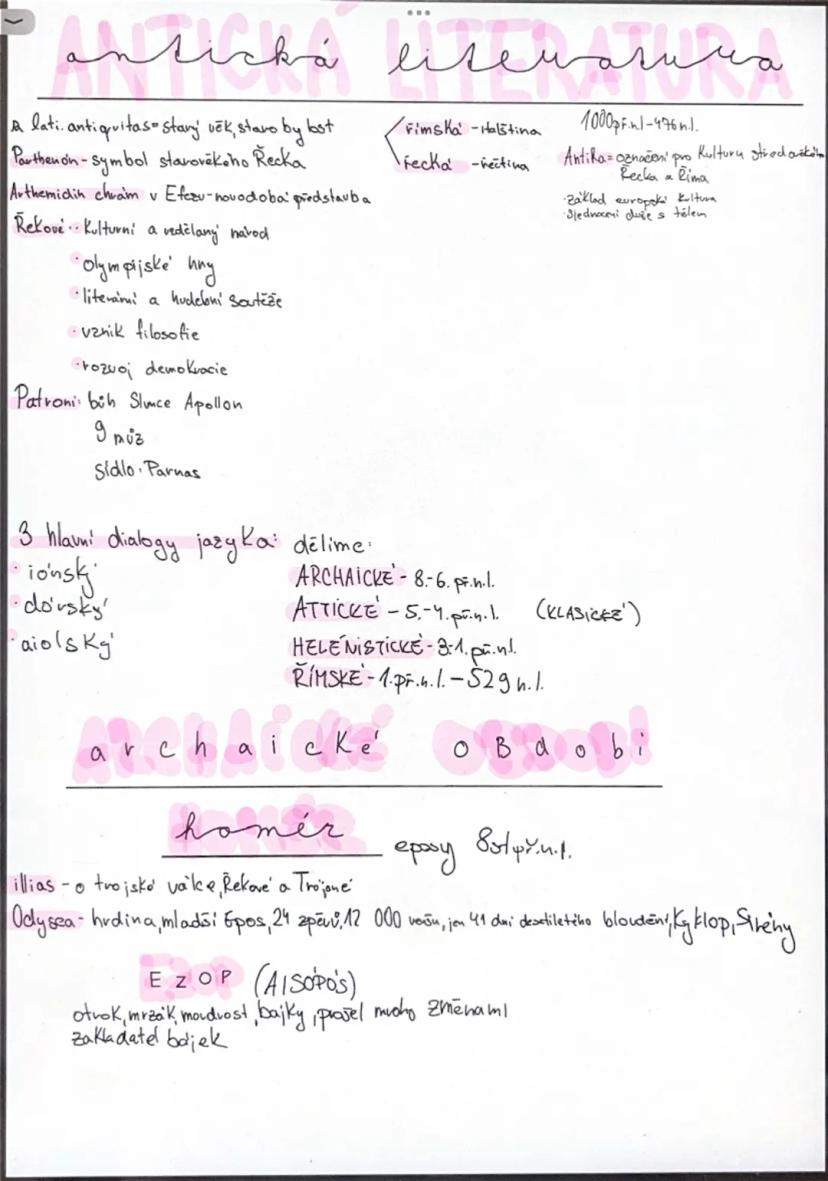 antická literatura
z lati. antiqvitas= starý věk, starobylost
římská - italština
řecká - řečtina
1000 př.n.l - 476 n.l.
Parthenón - symbol starověkého Řecka
Antika = označení pro kulturu středověkého
Řecka a Říma
Arthemidin chrám v Efezu - novodobá představba
· základ evropské kultura
· sjednocení duše s tělem
Řekové: · kulturní a vědělaný národ
· olympijské hry
· literární a hudební soutěže
· vznik filosofie
· rozvoj demokracie
Patroni: bůh Slunce Apollon
9 múz
sídlo: Parnas
3 hlavní dialogy jazyka:
· iónský
· dórský
· aiolský
dělíme:
ARCHAICKÉ - 8.-6. př.n.l.
ATTICKÉ - 5.-4. př.n.l. (KLASICKÉ)
HELÉNISTICKÉ - 3-1. př.n.l.
ŘÍMSKÉ - 1. př.n.l. - 529 n.l.
archaické oBdobi
homér
eposy 8st př.n.l.
illias - o trojské válce, Řekové a Trojané
Odysea - hrdina, mladší Epos, 24 zpěvů, 12 000 veršů, jen 41 dní desetiletého bloudění, Kyklop, Sirény
EZOP (AISÓPÓS)
otrok, mrzák, moudrost, bajky, prošel mnoho změnami
zakladatel bajek